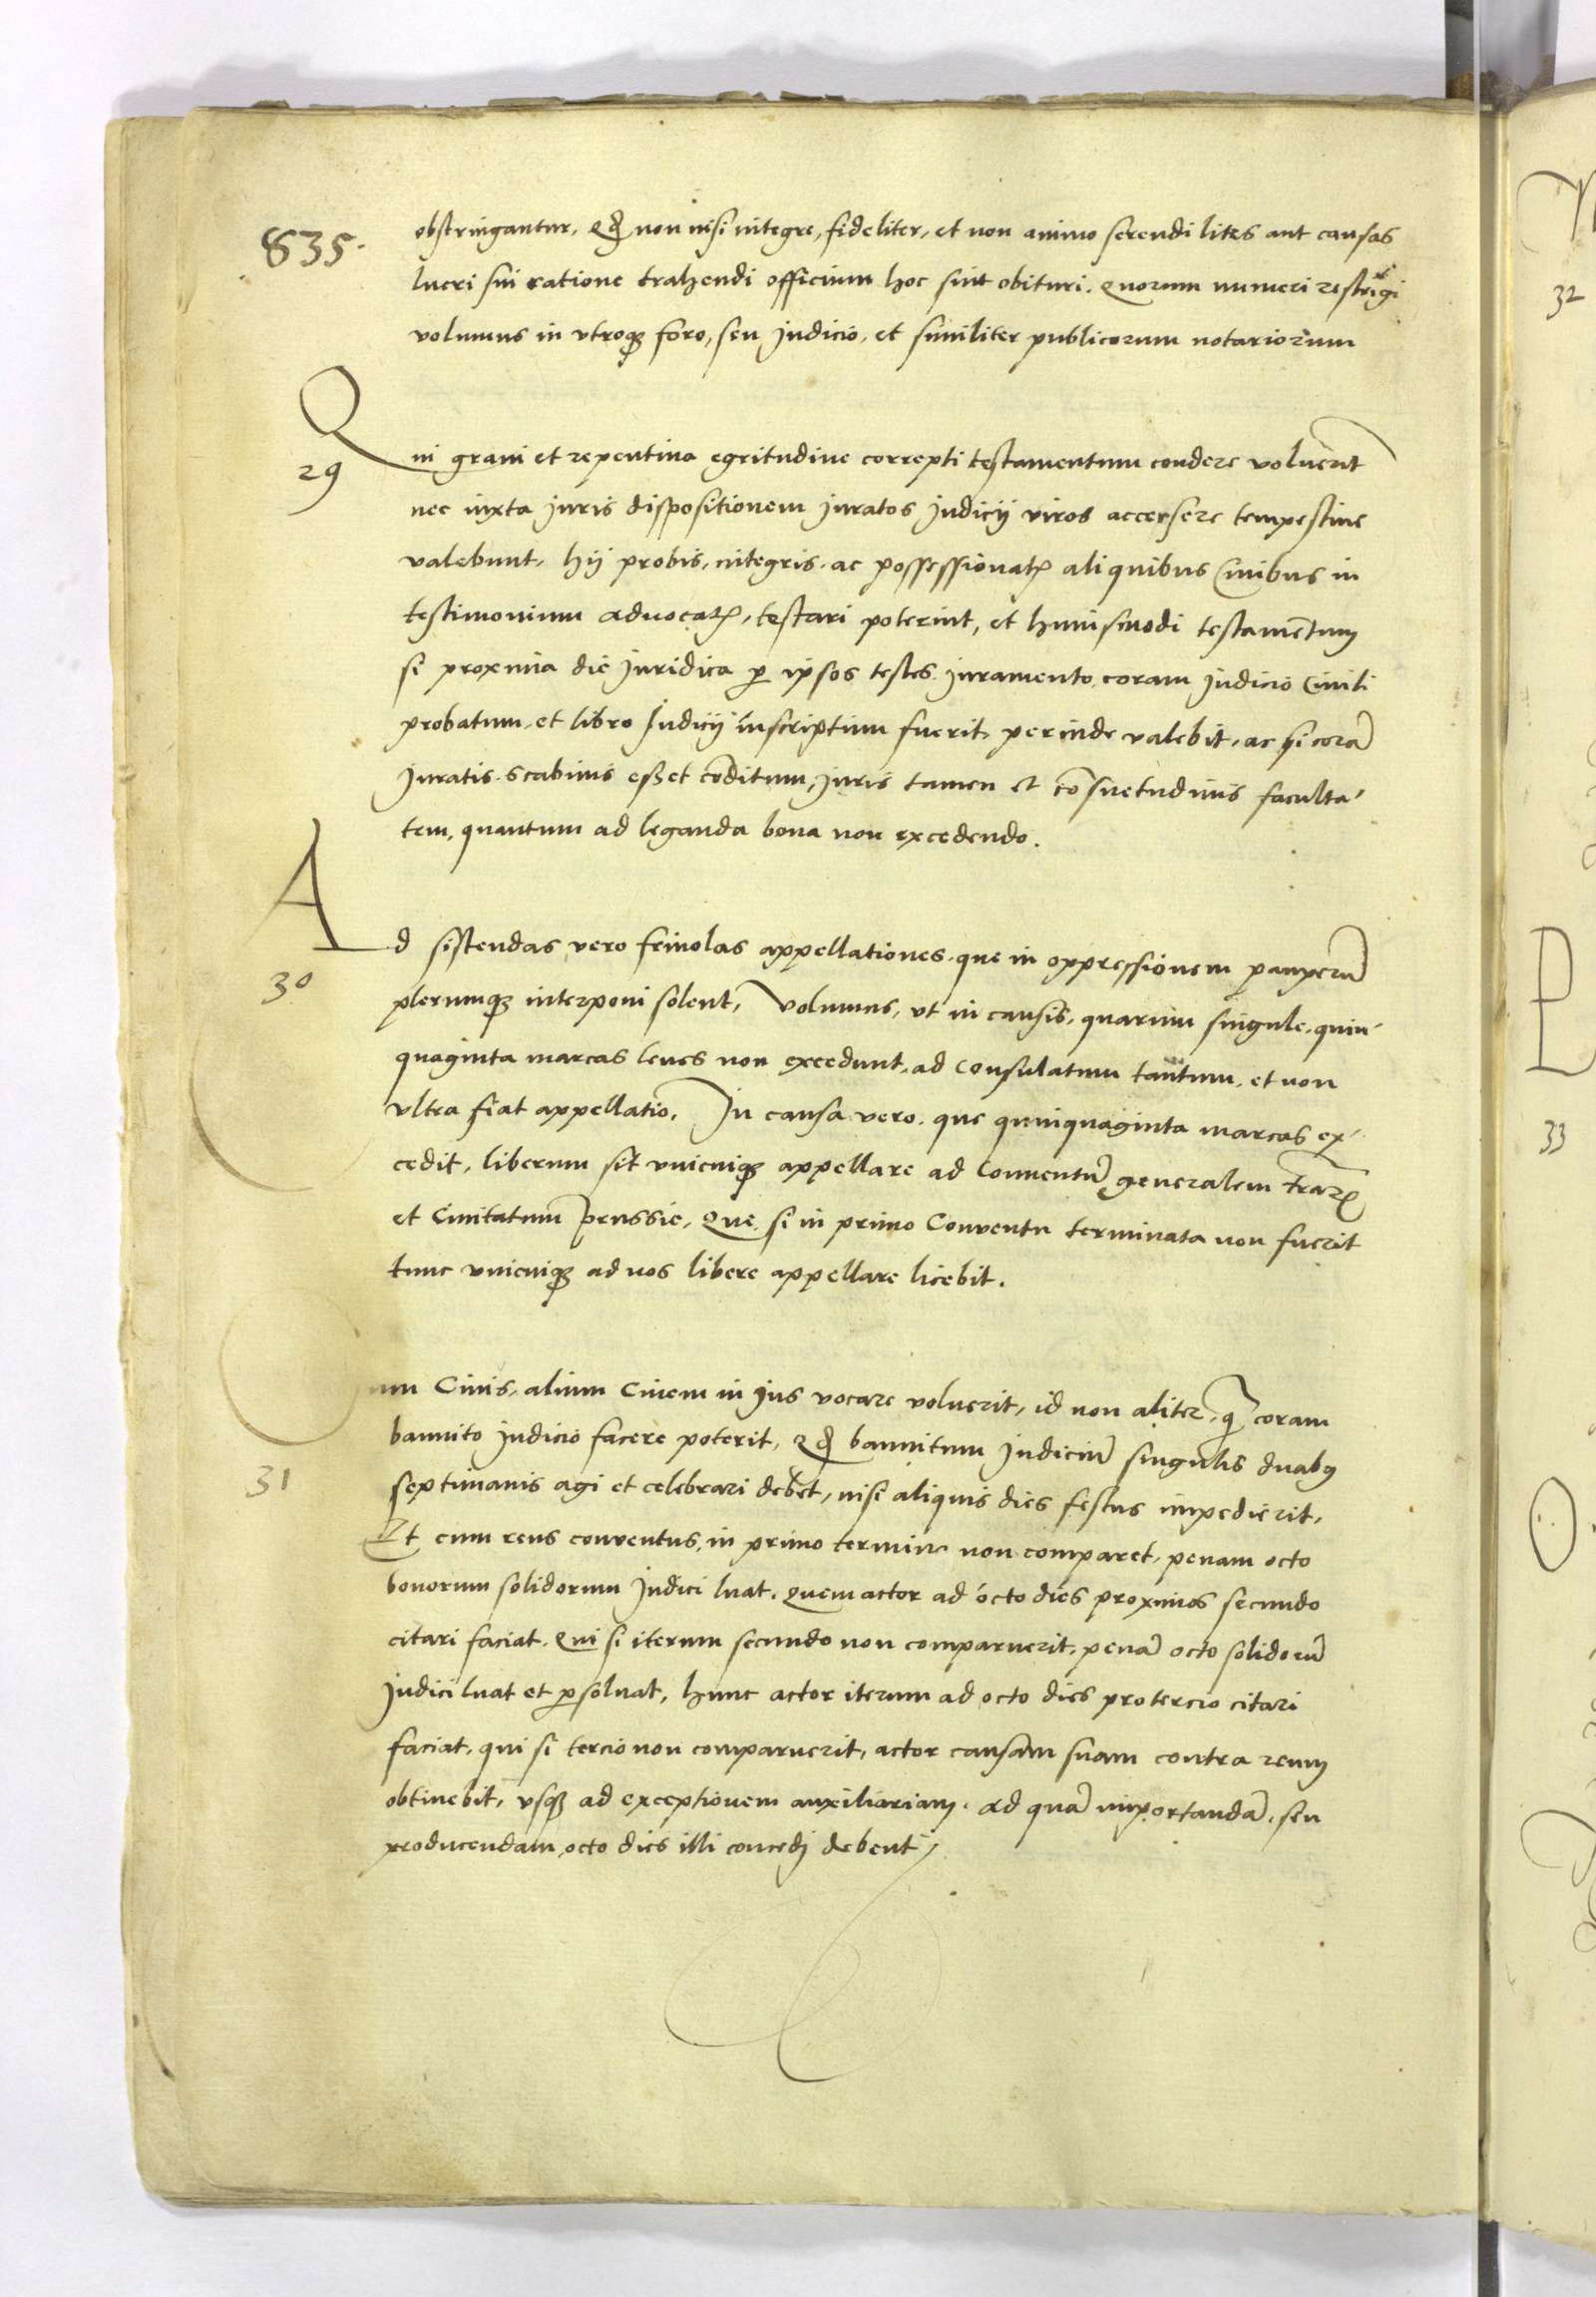 835.
obstringantur, qd non nisi integre, fideliter, et non animo serendi lites aut causas
lucri sui ratione trahendi officium hoc sint obituri. Quorum numeri restrīgi
volumus in vtroqꝫ foro, seu Judicio, et similiter publicorum notariorum
Qui graui et repentina egritudine correpti testamentum condere voluerīt
29
nec iuxta Juris dispositionem Juratos Judicij viros accersere tempestiue
valebunt, hij probis, integris, ac possessionatꝭ aliquibus Ciuibus in
testimonium aduocatꝭ, testari poterint, et huiusmodi testamentum
si proxima die Juridica ꝑ ipsos testes Juramento coram Judicio Ciuili
probatum, et libro Judicij inscriptum fuerit, perinde valebit, ac si corā
Juratis Scabinis esset cōditum, Juris tamen et cōsuetudinis faculta-
tem, quantum ad leganda bona non excedendo.
Ad sistendas vero friuolas appellationes, que in oppressionem pauperū
30
plerumqꝫ interponi solent, Volumus, vt in causis, quarum singule, quin-
quaginta marcas leues non excedunt, ad Consulatum tantum, et non
vltra fiat appellatio, In causa vero, que quinquaginta marcas ex-
cedit, liberum sit vnicuiqꝫ appellare ad Conuentū generalem Traꝝ
et Ciuitatum Prussie, Que si in primo Conuentu terminata non fuerit
tunc vnicuiqꝫ ad nos libere appellare licebit.
um Ciuis, alium Ciuem in Jus vocare voluerit, id non aliter, ꝙ̄ coram
bannito Judicio facere poterit, qd bannitum Judiciū singulis duabꝰ
31
septimanis agi et celebrari debet, nisi aliquis dies festus impedierit,
Et cum reus conuentus, in primo termino non comparet, penam octo
bonorum solidorum Judici luat, Quem actor ad octo dies proximos secundo
citari faciat, Qui si iterum secundo non comparuerit, penā octo solidorū
Judici luat et ꝑsoluat, hunc actor iterum ad octo dies pro tercio citari
faciat, qui si tercio non comparuerit, actor causam suam contra reum
obtinebit, vsqꝫ ad exceptionem auxiliariam, ad quā importandā, seu
producendam, octo dies illi concedj debent,
32
33